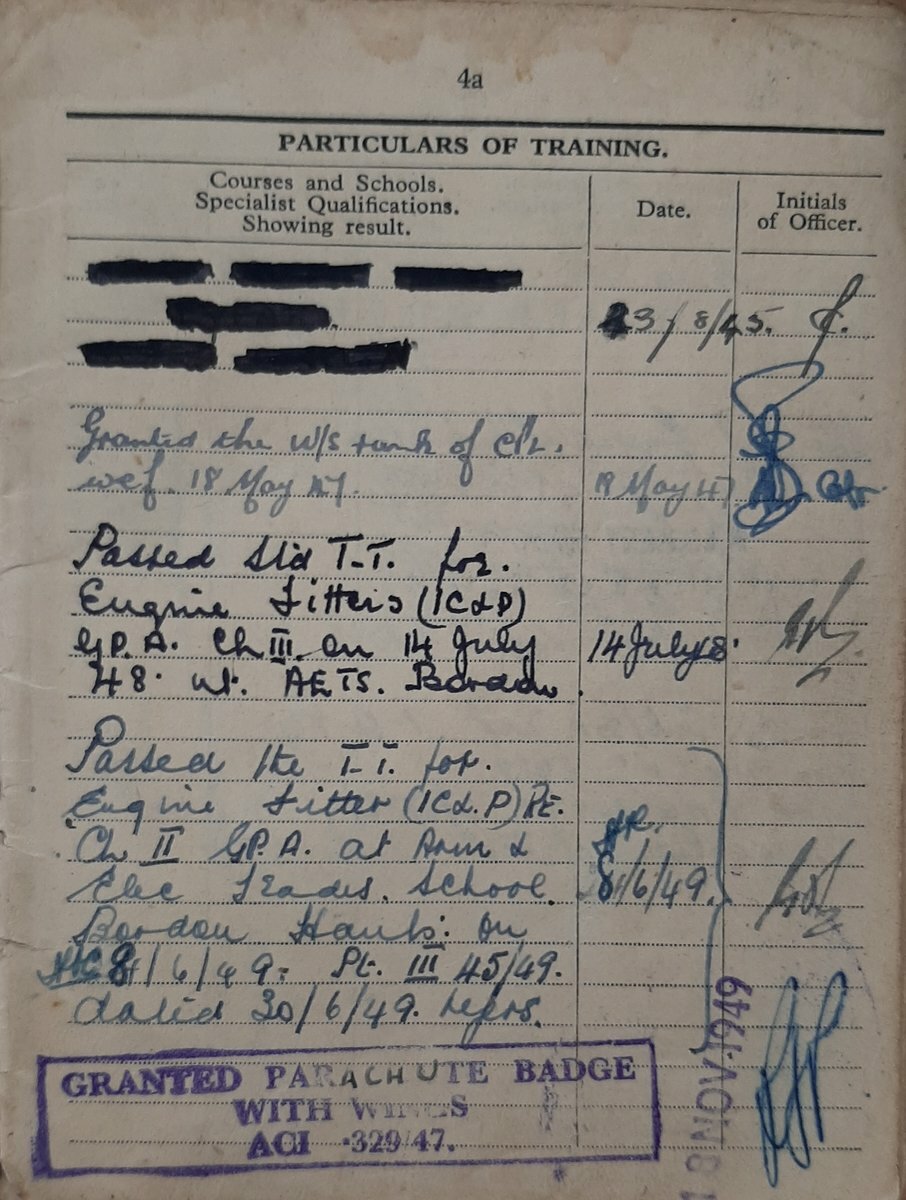 4a
PARTICULARS OF TRAINING.
Courses and Schools.
Specialist Qualifications.
Showing result.
Date.
Initials
of Officer.
23/8/45.
Granted the W/S rank of CPL.
wef. 18 May 47. 19 May 47
Passed Std T.T. for.
Engine Fitters (IC&P)
GP.A. Cl III on 14 July 14 July 48.
48. at. AETS. Bordon.
Passed the T.T. for.
Engine Fitter (IC&.P) RE.
Cl II GP.A. at Arm &
Elec Trades. School. 8/6/49.
Bordon Hants: on
8/6/49: Pt. III 45/49.
dated 30/6/49.
GRANTED PARACHUTE BADGE
WITH WINGS
ACI 329/47.
18 NOV 1949